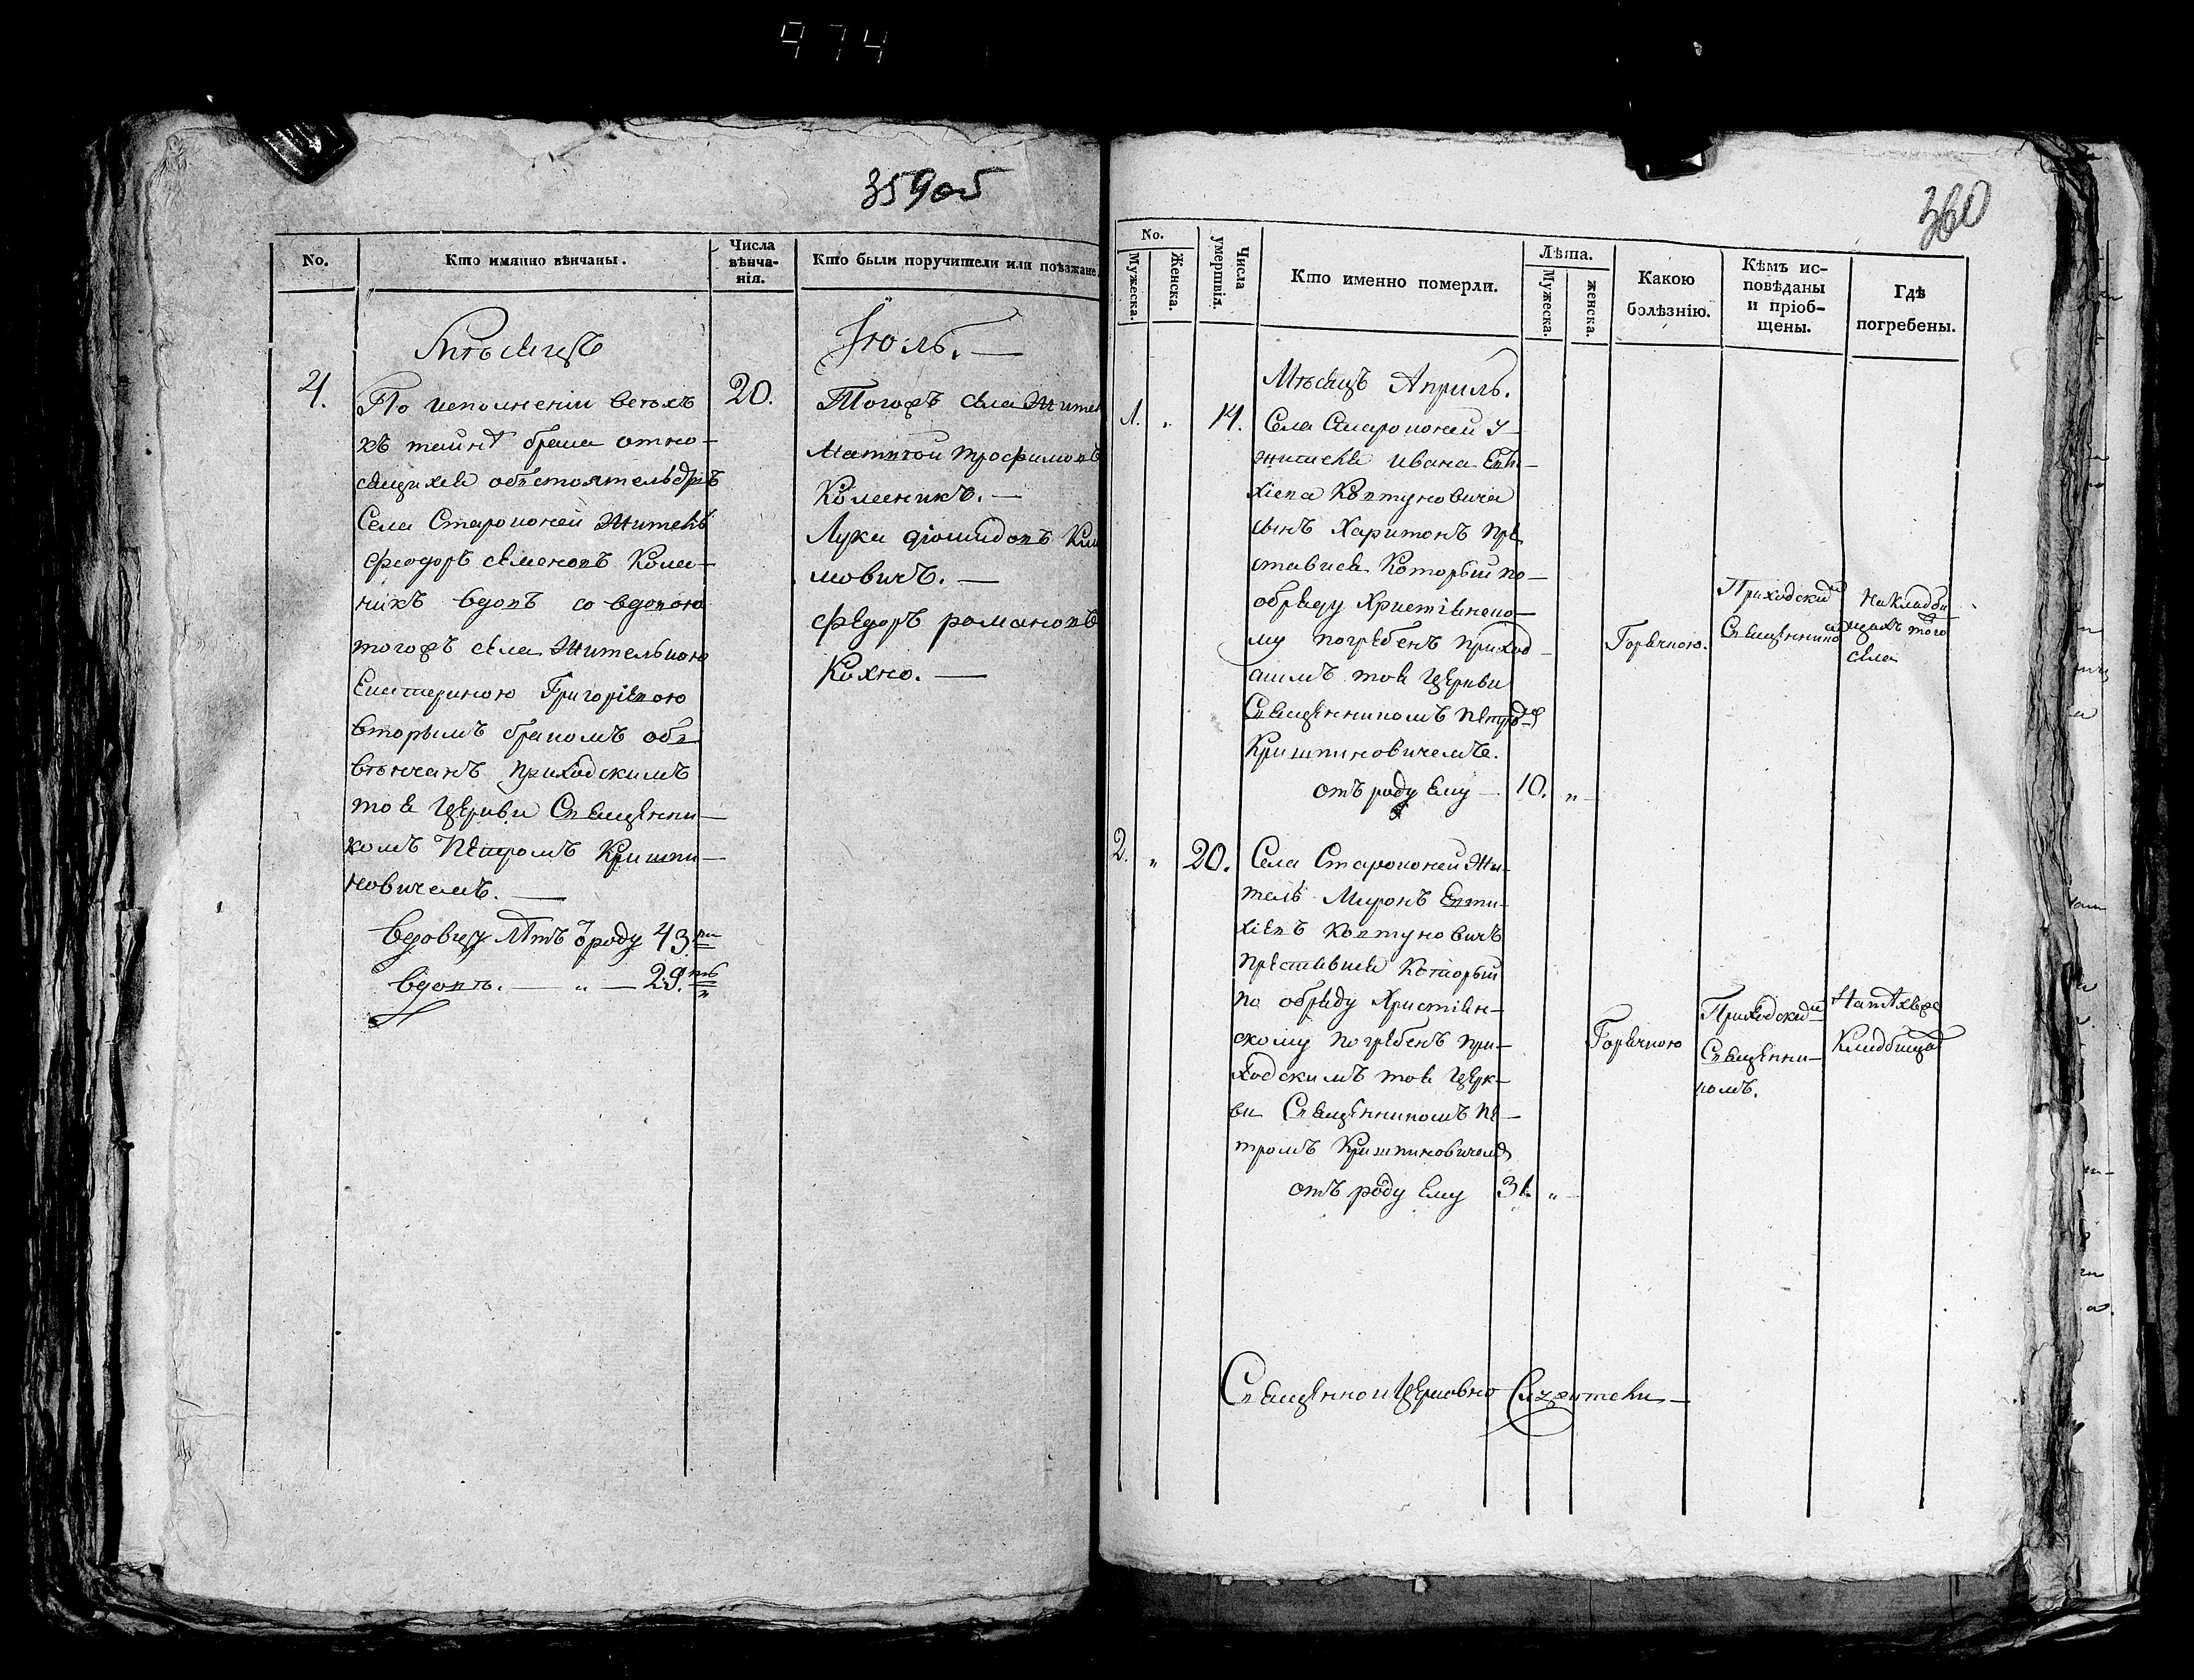 974
359об
No.
Кто имянно вѣнчаны.
Числа
вѣнча-
нія.
Кто были поручители или поѣзжане.
Мѣсяцъ
Іюль. —
4.
По исполненіи всѣхъ
къ тайнѣ брака отно-
сящихся обстоятельствъ
Села Старополей Житель
Феодоръ Семеновъ Колес-
никъ вдовъ со вдовою
тогожъ села Жителькою
Екатериною Григоріевою
вторымъ бракомъ обѣ
вѣнчанъ приходскимъ
тоя Церкви Священни-
комъ Петромъ Кришти-
новичемъ. —
Вдовцу лѣтъ ѿ роду 43.
вдовѣ. — „ — 29.
20.
Тогожъ села Жител
Матвѣй Трофимовъ
Колесникъ. —
Лука Діомидовъ Кли
мовичъ. —
Федоръ Романовъ
Кохно. —
360
No.
Мужеска.
Женска.
Числа
умертвія.
Кто именно померли.
Лѣта.
Мужеска.
женска.
Какою
болѣзнію.
Кѣмъ ис-
повѣданы
и пріоб-
щены.
Гдѣ
погребены.
Мѣсяцъ Априль.
1.
„
14.
жителя Ивана Евти-
хіева Ковтуновича
сынъ Харитонъ пре
ставися Который по-
обряду Христіянско-
му погребенъ приход-
скимъ тоя Церкви
Священникомъ Петромъ
Криштиновичемъ.
отъ роду ему — 10. „ —
Горячкою.
Приходским
Священником
На кладби
щахъ того
села
2.
„
20.
Села Старополей Жи-
тель Миронъ Евти-
хіевъ Ковтуновичъ
преставися Который
по обряду Христіян-
скому погребенъ при-
ходскимъ тоя Церк-
ви Священникомъ Пе-
тромъ Криштиновичемъ
отъ роду ему 31. „ —
Горячкою
Приходским
Священни-
комъ.
На тѣхъже
Кладбищах
Священно и Церковно Служители —